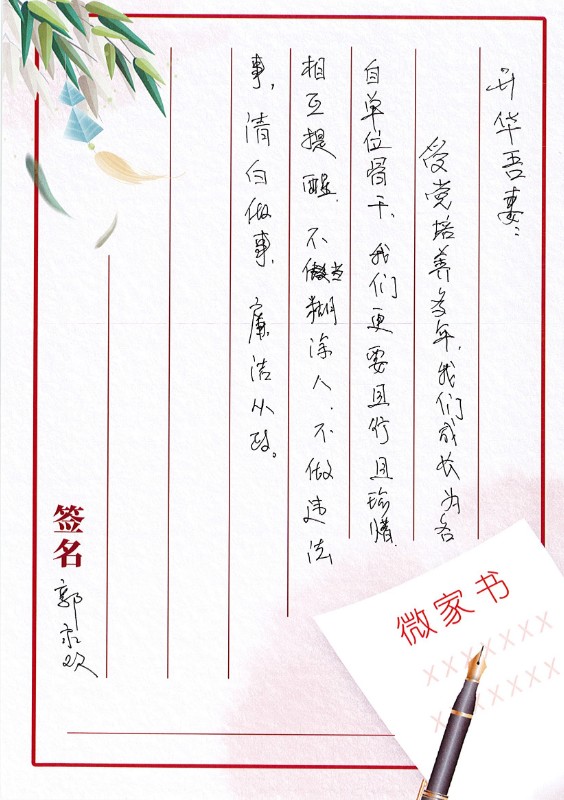 升华吾妻：
受党培养多年，我们成长为各
自单位骨干、我们更要且行且珍惜，
相互提醒，不做糊涂人，不做违法
事，清白做事，廉洁从政。
签名
郭欢
微家书
XXXXXXX
XXXXXXX